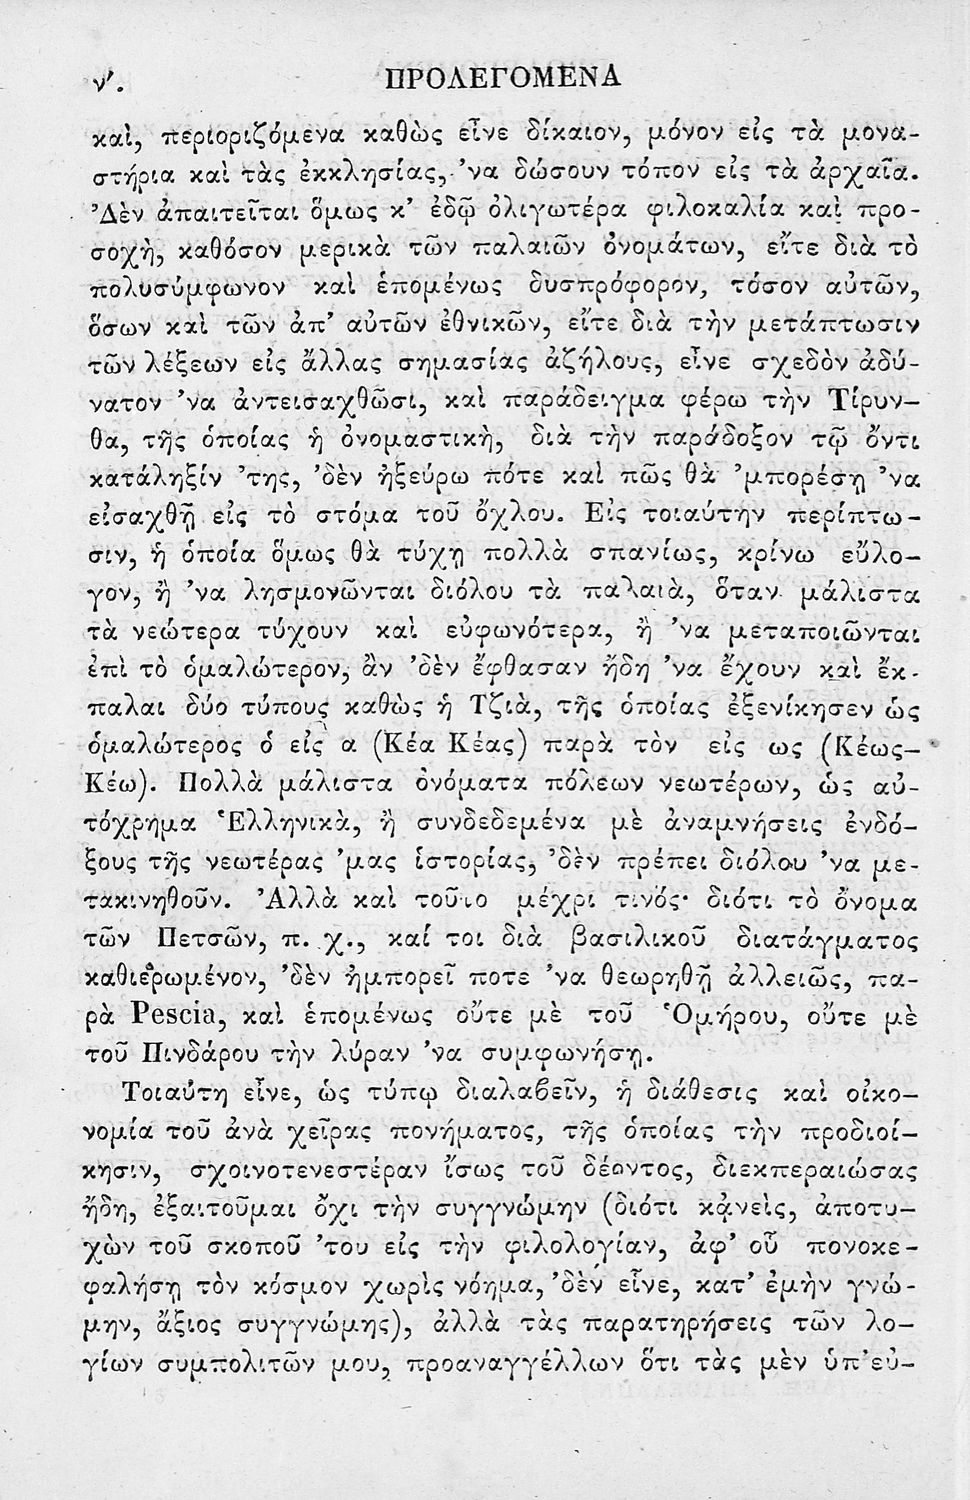 ν΄.
ΠΡΟΛΕΓΟΜΕΝΑ
καὶ, περιοριζόμενα καθὼς εἶνε δίκαιον, μόνον εἰς τὰ μονα-
στήρια καὶ τὰς ἐκκλησίας, ’να δώσουν τόπον εἰς τὰ ἀρχαῖα.
’Δὲν ἀπαιτεῖται ὅμως κ’ ἐδῷ ὀλιγωτέρα φιλοκαλία καὶ προ-
σοχὴ, καθόσον μερικὰ τῶν παλαιῶν ὀνομάτων, εἴτε διὰ τὸ
πολυσύμφωνον καὶ ἑπομένως δυσπρόφορον, τόσον αὐτῶν,
ὅσων καὶ τῶν ἀπ’ αὐτῶν ἐθνικῶν, εἴτε διὰ τὴν μετάπτωσιν
τῶν λέξεων εἰς ἄλλας σημασίας ἀζήλους, εἶνε σχεδὸν ἀδύ-
νατον ’να ἀντεισαχθῶσι, καὶ παράδειγμα φέρω τὴν Τίρυν-
θα, τῆς ὁποίας ἡ ὀνομαστικὴ, διὰ τὴν παράδοξον τῷ ὄντι
κατάληξίν ’της, ’δὲν ἠξεύρω πότε καὶ πῶς θὰ ’μπορέσῃ ’να
εἰσαχθῇ εἰς τὸ στόμα τοῦ ὄχλου. Εἰς τοιαύτην περίπτω-
σιν, ἡ ὁποία ὅμως θὰ τύχῃ πολλὰ σπανίως, κρίνω εὔλο-
γον, ἢ ’να λησμονῶνται διόλου τὰ παλαιὰ, ὅταν μάλιστα
τὰ νεώτερα τύχουν καὶ εὐφωνότερα, ἢ ’να μεταποιῶνται
ἐπὶ τὸ ὁμαλώτερον, ἂν ’δὲν ἔφθασαν ἤδη ’να ἔχουν καὶ ἔκ-
παλαι δύο τύπους καθὼς ἡ Τζιὰ, τῆς ὁποίας ἐξενίκησεν ὡς
ὁμαλώτερος ὁ εἰς α (Κέα Κέας) παρὰ τὸν εἰς ως (Κέως-
Κέω). Πολλὰ μάλιστα ὀνόματα πόλεων νεωτέρων, ὡς αὐ-
τόχρημα Ἑλληνικὰ, ἢ συνδεδεμένα μὲ ἀναμνήσεις ἐνδό-
ξους τῆς νεωτέρας ’μας ἱστορίας, ’δὲν πρέπει διόλου ’να με-
τακινηθοῦν. Ἀλλὰ καὶ τοῦτο μέχρι τινός· διότι τὸ ὄνομα
τῶν Πετσῶν, π. χ., καί τοι διὰ βασιλικοῦ διατάγματος
καθιερωμένον, ’δὲν ἠμπορεῖ ποτε ’να θεωρηθῇ ἀλλειῶς, πα-
ρὰ Pescia, καὶ ἑπομένως οὔτε μὲ τοῦ Ὁμήρου, οὔτε μὲ
τοῦ Πινδάρου τὴν λύραν ’να συμφωνήσῃ.
Τοιαύτη εἶνε, ὡς τύπῳ διαλαβεῖν, ἡ διάθεσις καὶ οἰκο-
νομία τοῦ ἀνὰ χεῖρας πονήματος, τῆς ὁποίας τὴν προδιοί-
κησιν, σχοινοτενεστέραν ἴσως τοῦ δέοντος, διεκπεραιώσας
ἤδη, ἐξαιτοῦμαι ὄχι τὴν συγγνώμην (διότι κᾀνεὶς, ἀποτυ-
χὼν τοῦ σκοποῦ ’του εἰς τὴν φιλολογίαν, ἀφ’ οὗ πονοκε-
φαλήσῃ τὸν κόσμον χωρὶς νόημα, ’δὲν εἶνε, κατ’ ἐμὴν γνώ-
μην, ἄξιος συγγνώμης), ἀλλὰ τὰς παρατηρήσεις τῶν λο-
γίων συμπολιτῶν μου, προαναγγέλλων ὅτι τὰς μὲν ὑπ’εὐ-